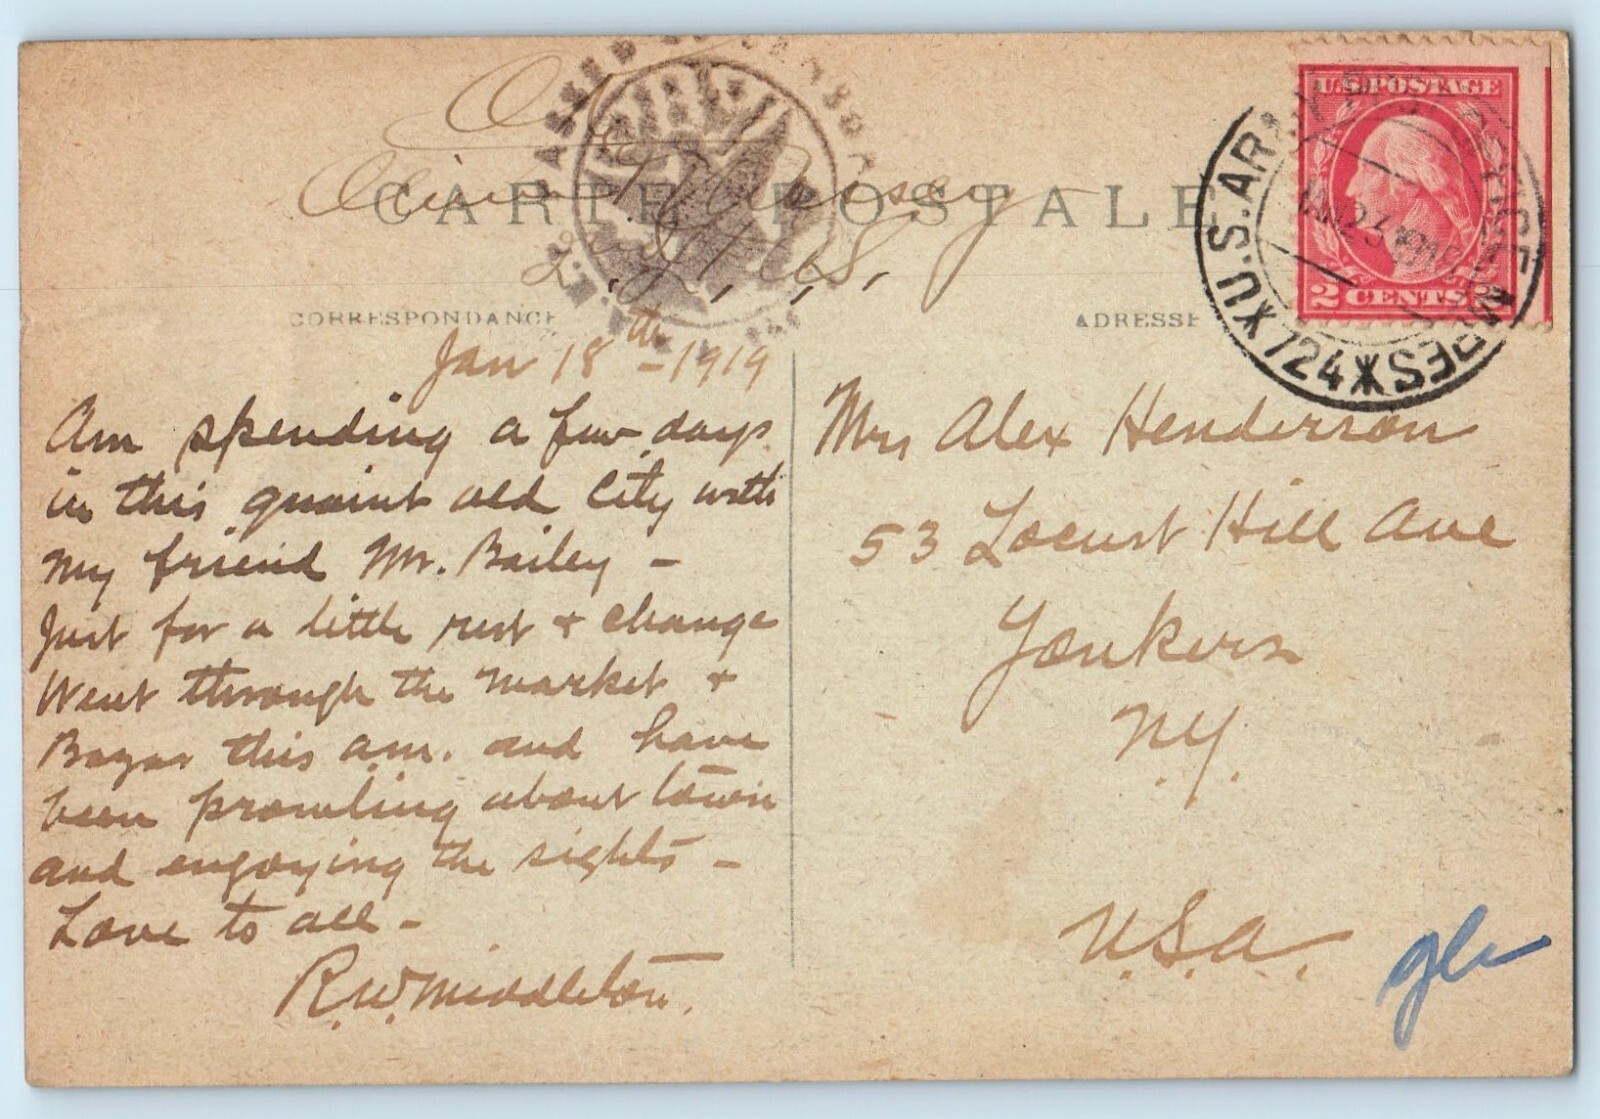 CARTE POSTALE
CORRESPONDANCE
ADRESSE
U.S. POSTAGE
2 CENTS 2
U.S. ARMY
724
Jan 18th - 1919
Am spending a few days
in this quaint old City with
my friend Mr. Bailey -
Just for a little rest & change
Went through the market &
Bazar this a.m. and have
been prowling about town
and engoying the sights -
Love to all -
R.W. Middleton.
Mrs Alex Henderson
53 Locust Hill Ave
Yonkers
N.Y.
U.S.A.